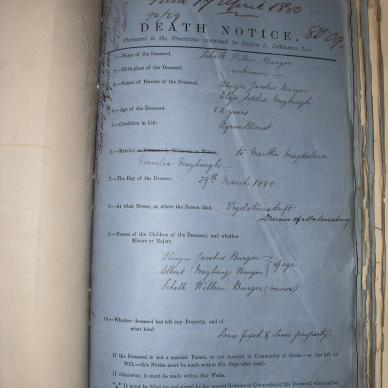 Filed 17 April 1880
70/29
DEATH NOTICE.
Pursuant to the Provisions contained in Section
1.—Name of the Deceased, Schalk Willem Burger
2.—Birthplace of the Deceased, unknown
3.—Names of Parents of the Deceased, Alwyn Jacobus Burger
Sophia Myburgh
4.—Age of the Deceased, 52 years
5.—Condition in Life, Agriculturist
6.—Married or Unmarried, Widower or Widow, to Martha Magdalena
Cornelia Myburgh
7.—The Day of the Decease, 29th March 1880
8.—At what House, or where the Person died, Vogelstruisdrift
Division of Malmesbury
9.—Names of the Children of the Deceased, and whether
Minors or Majors.
Alwyn Jacobus Burger
Albert Myburg Burger } of age
Schalk Willem Burger (minor)
10.—Whether deceased has left any Property, and of
what kind.
Some fixed & loose property
If the Deceased is not a married Person, or not married in Community of Goods,—or has left no
Will,—this Notice must be made within Six Days after death.
If otherwise, it must be made within Six Weeks.